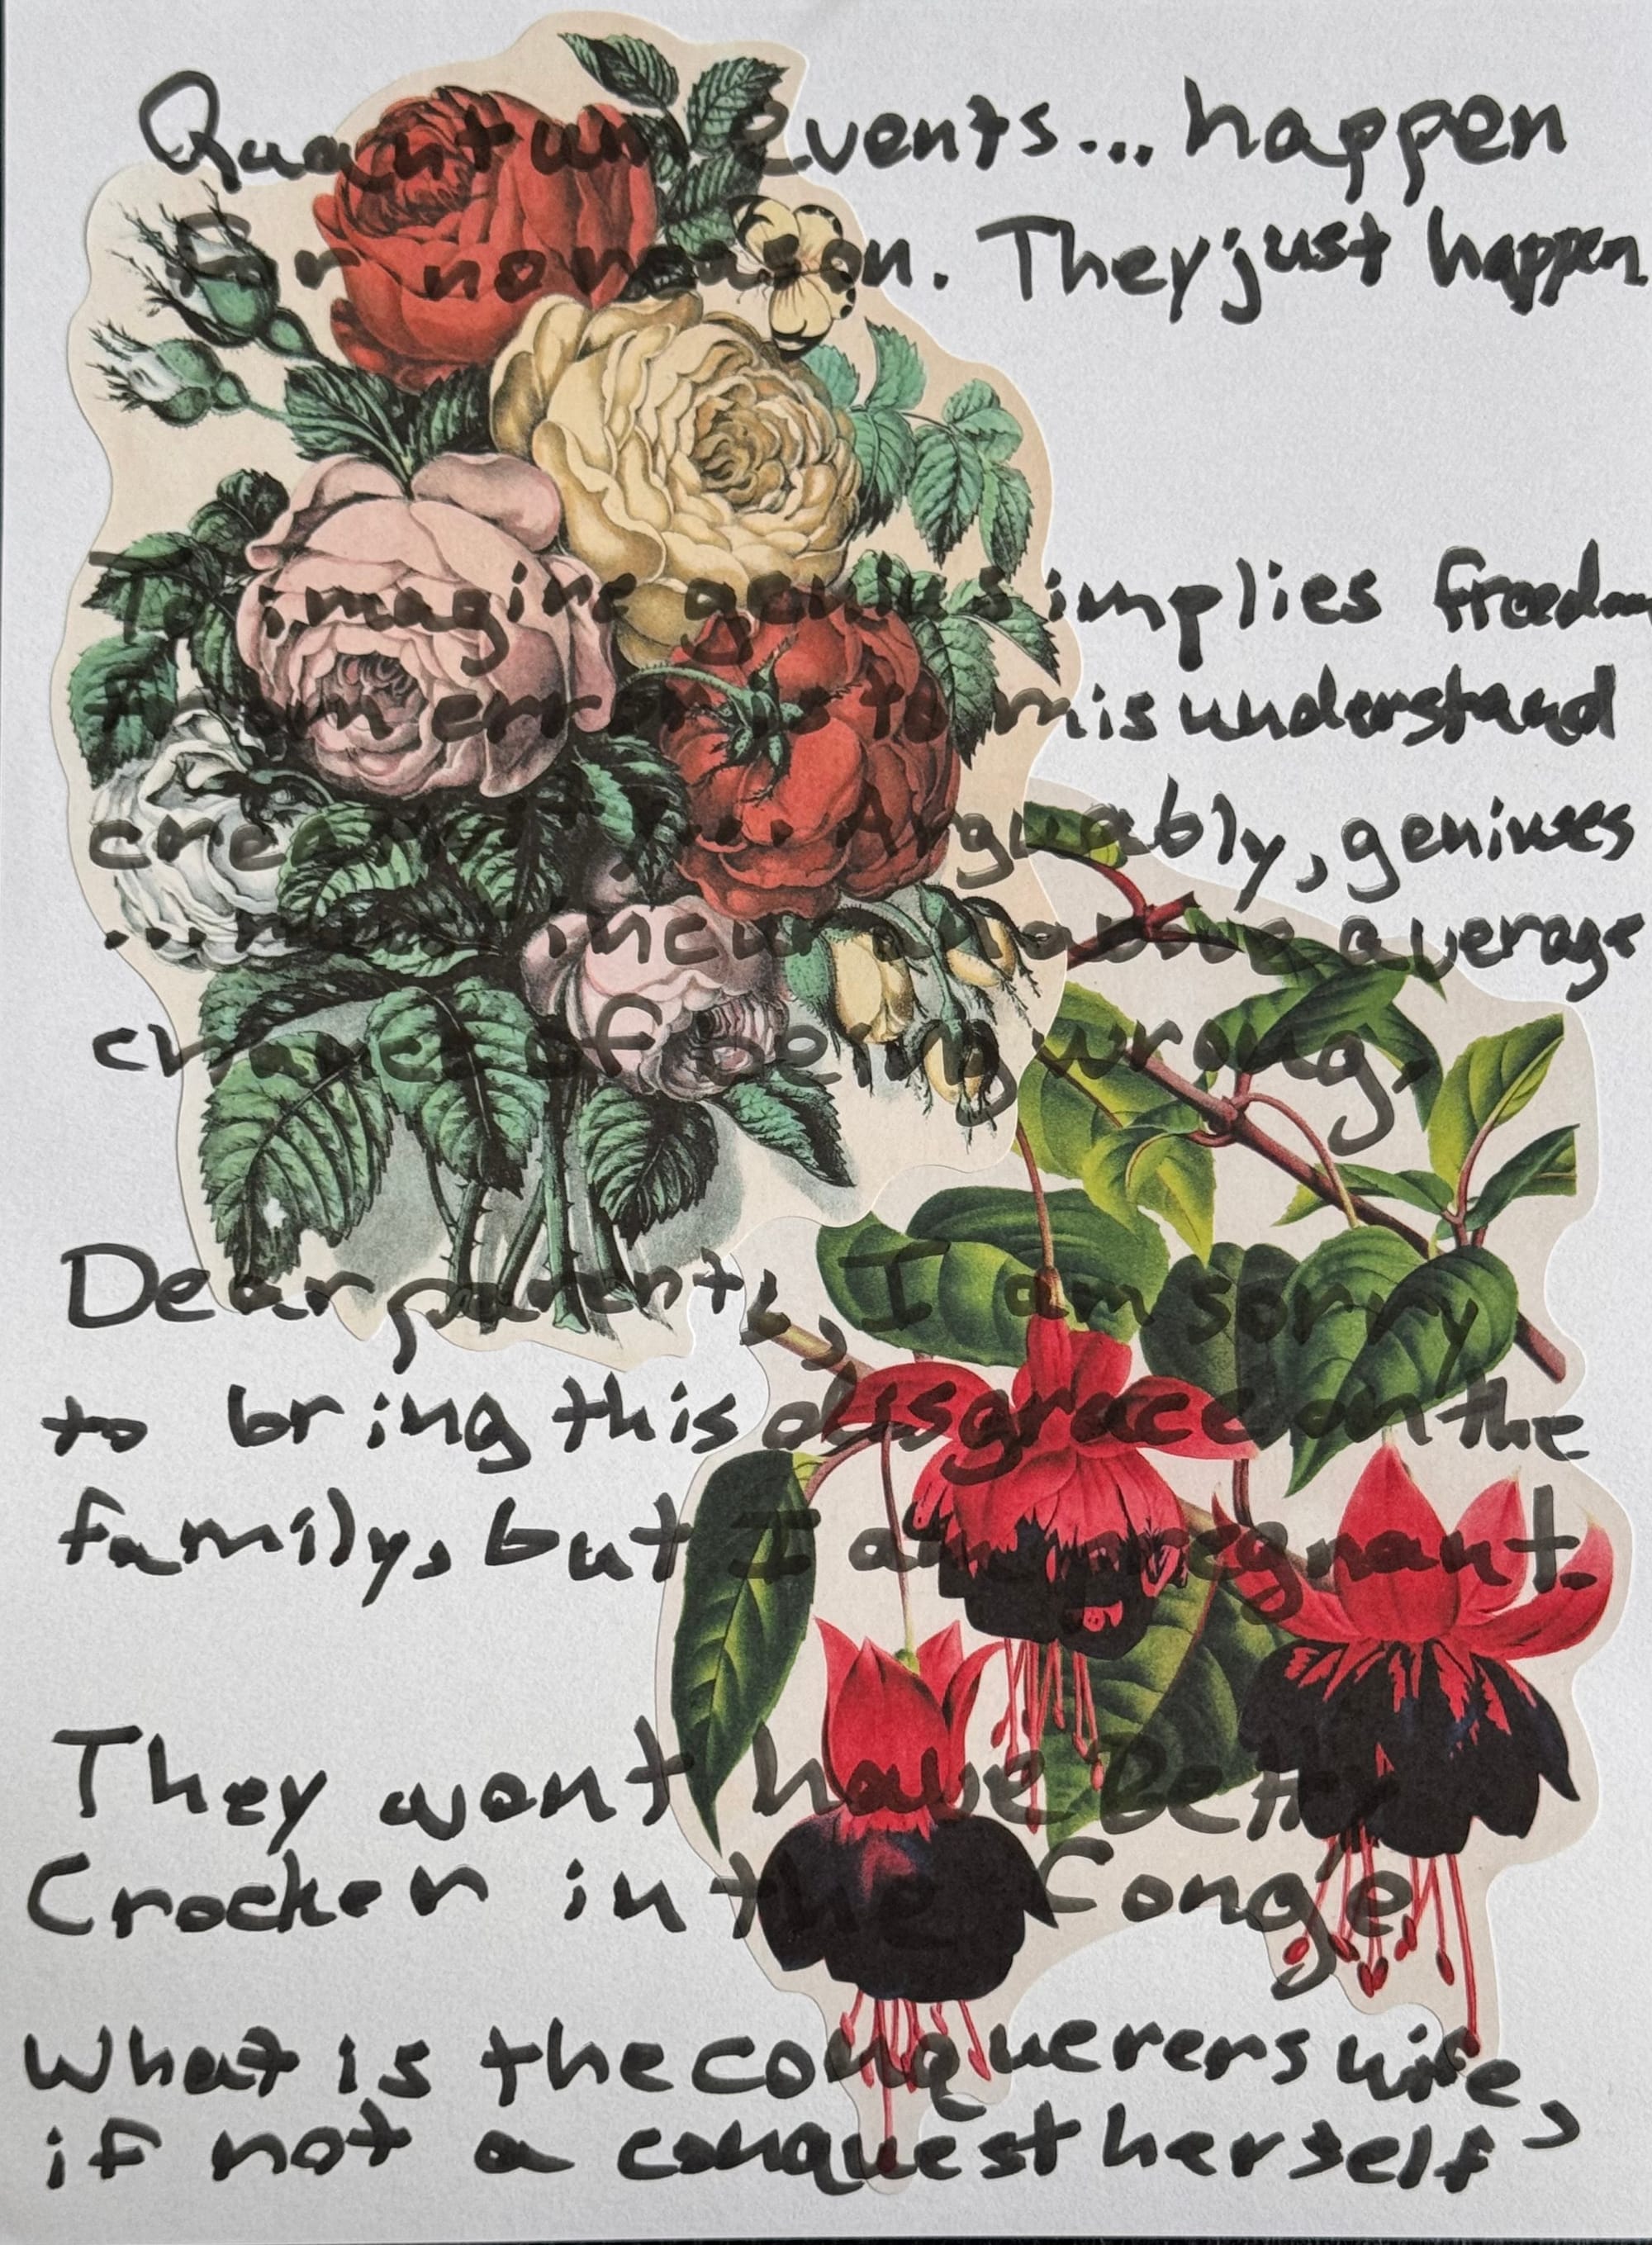 Quantum events... happen
for no reason. They just happen.
To imagine genius implies freedom
from error is to misunderstand
creativity... Arguably, geniuses
... incur an above average
chance of being wrong.
Dear parents, I am sorry
to bring this disgrace on the
family, but I am pregnant.
They wont have Betty
Crocker in the Congo
What is the conquerers wife,
if not a conquest herself?